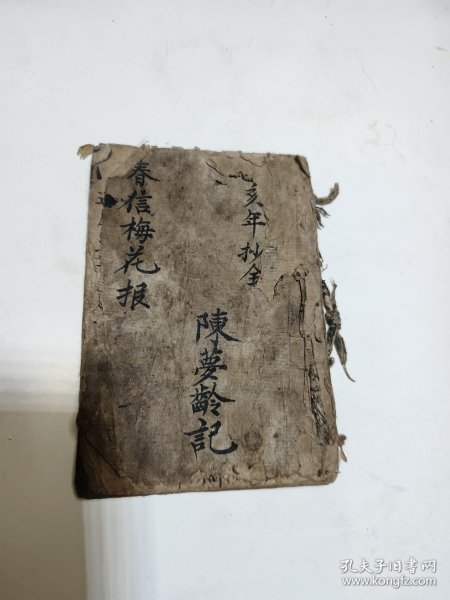 亥年抄全
陳夢齡記
春信梅花报
孔夫子旧书网
www.kongfz.com